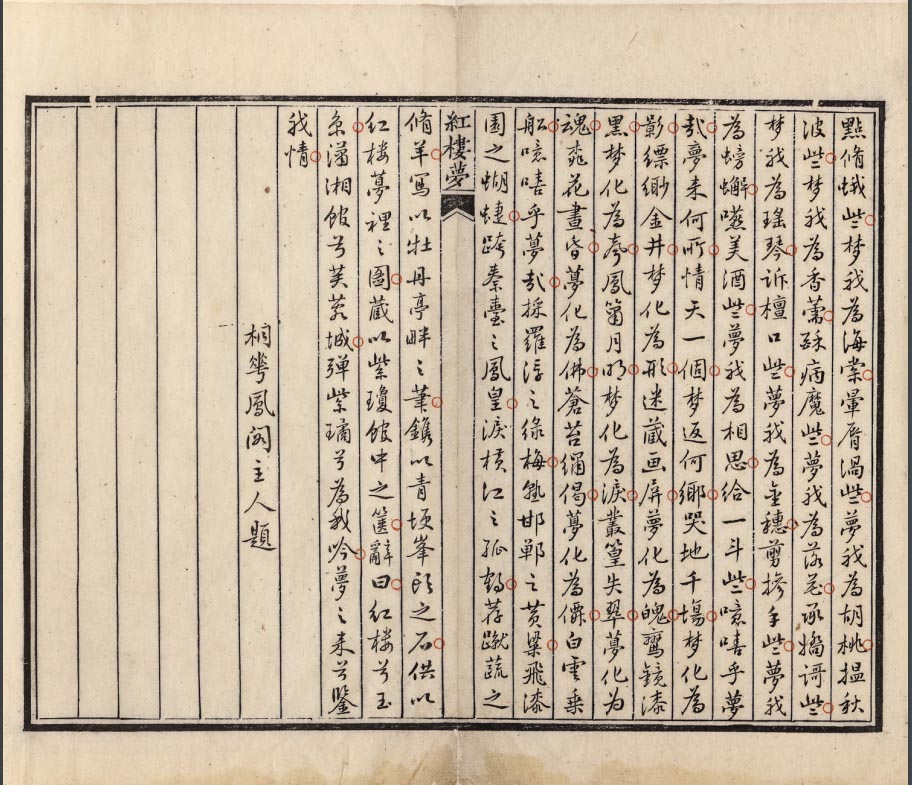 點脩蛾些夢我為海棠暈脣渦些夢我為胡桃搵秋
波些夢我為香薷蘇病魔些夢我為落花承嬌謌些
夢我為瑤琴訴檀口些夢我為金穗剪摻手些夢我
為螃蠏嚥美酒些夢我為相思給一斗些噫嘻乎夢
哉夢來何所情天一個夢返何鄉哭地千塲夢化為
影縹緲金井夢化為形迷藏画屏夢化為魄鸞鏡漆
黑夢化為鳳簫月明夢化為淚叢篁失翠夢化為
魂窕花晝昏夢化為佛蒼苔繡偈夢化為僊白雲乗
船噫嘻乎夢哉採羅浮之綠梅塾邯鄲之黄粱飛漆
園之蝴蜨跨秦臺之鳳皇淚横江之孤鶴荐蹴蔬之
紅樓夢
脩羊寫以牡丹亭畔之筆鐫以青埂峯頭之石供以
紅樓夢裡之圖蔵以紫瓊館中之篋辭曰紅樓兮玉
京瀟湘館兮芙蓉城弹紫璚兮為我吟夢之来兮鑒
我情
桐花鳳阁主人題